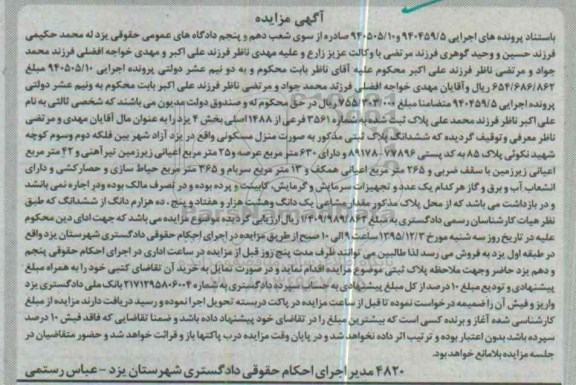 آگهی مزایده
باستناد پرونده های اجرایی ۹۴۰۴۵۹/۵ و ۹۴۰۵۰۵/۱۰ صادره از سوی شعب دهم و پنجم دادگاه های عمومی حقوقی یزد له محمد حکیمی
فرزند حسین و وحید گوهری فرزند مرتضی با وکالت عزیز زارع و علیه مهدی ناظر فرزند علی اکبر و مهدی خواجه افضلی فرزند محمد
جواد و مرتضی ناظر فرزند علی اکبر محکوم علیه آقای ناظر بابت محکوم به و دو نیم عشر دولتی پرونده اجرایی ۹۴۰۵۰۵/۱۰ مبلغ
۶۵۴/۶۸۶/۸۶۲ ریال و آقایان مهدی خواجه افضلی فرزند محمد جواد و مرتضی ناظر فرزند علی اکبر بابت محکوم به ونیم عشر دولتی
پرونده اجرایی ۹۴۰۴۵۹/۵ متضامنا مبلغ ۷۵۵/۳۰۳/۰۰۰ ریال در حق محکوم له و صندوق دولت مدیون می باشند که شخص ثالثی به نام
علی اکبر ناظر فرزند محمد علی پلاک ثبت شده به شماره ۳۵۶۱ فرعی از ۱۴۸۸ اصلی بخش ۴ یزد را به عنوان مال آقایان مهدی و مرتضی
ناظر معرفی و توقیف گردیده که ششدانگ پلاک ثبتی مذکور به صورت منزل مسکونی واقع در یزد آزاد شهر بین فلکه دوم وسوم کوچه
شهید نکوئی پلاک ۸۵ به کد پستی ۷۷۸۹۶-۸۹۱۷۸ و دارای ۶۳۰ متر مربع عرصه و ۲۵ متر مربع اعیانی زیرزمین تیرآهنی و ۴۲ متر مربع
اعیانی زیرزمین با سقف ضربی و ۲۶۵ متر مربع اعیانی همکف و ۱۳ متر مربع سربام و ۳۶۵ متر مربع حیاط سازی و حصارکشی و دارای
انشعاب آب و برق و گاز هر کدام یک عدد و تجهیزات سرمایش و گرمایش، کابینت و پرده بوده و در تصرف مالک بوده ودر اجاره نمی باشد
و در بازداشت می باشد که از محل پلاک مذکور مقدار مشاعی یک دانگ وهشت هزار و هفتاد و پنج، ده هزارم دانگ از ششدانگ که طبق
نظر هیات کارشناسان رسمی دادگستری به مبلغ ۱/۴۰۹/۹۸۹/۸۶۳ ریال ارزیابی گردیده موضوع مزایده می باشد که جهت ادای دین محکوم
علیه در تاریخ روز سه شنبه مورخ ۱۳۹۵/۱۲/۳ ساعت ۹ الی ۱۰ صبح از طریق مزایده در اجرای احکام حقوقی دادگستری شهرستان یزد واقع
در طبقه اول یزد به فروش می رسد لذا طالبین می توانند ظرف مدت پنج روز قبل از مزایده در ساعت اداری در اجرای احکام حقوقی پنجم
و دهم یزد حاضر وجهت ملاحظه پلاک ثبتی موضوع مزایده اقدام نماید و در صورت تمایل به خرید آن تقاضای کتبی خود را به همراه مبلغ
پیشنهادی و تودیع مبلغ ۱۰ درصد از کل مبلغ پیشنهادی به حساب سپرده دادگستری به شماره ۲۱۷۱۲۹۵۸۰۶۰۰۴ بانک ملی دادگستری یزد
واریز و فیش آن را ضمیمه درخواست نموده تا قبل از ساعت مزایده در پاکت دربسته تحویل اجرا نموده و رسید دریافت دارند مزایده از مبلغ
کارشناسی شده آغاز و برنده کسی است که بیشترین مبلغ را در تقاضای خود پیشنهاد داده باشد و ضمنا تقاضایی که فاقد فیش ۱۰ درصد
سپرده باشد بدون اعتبار بوده و ترتیب اثر داده نخواهد شد و در پایان وقت مزایده درب پاکتها باز و قرائت خواهد شد و حضور متقاضیان در
جلسه مزایده بلامانع خواهد بود.
۴۸۲۰ مدیر اجرای احکام حقوقی دادگستری شهرستان یزد - عباس رستمی